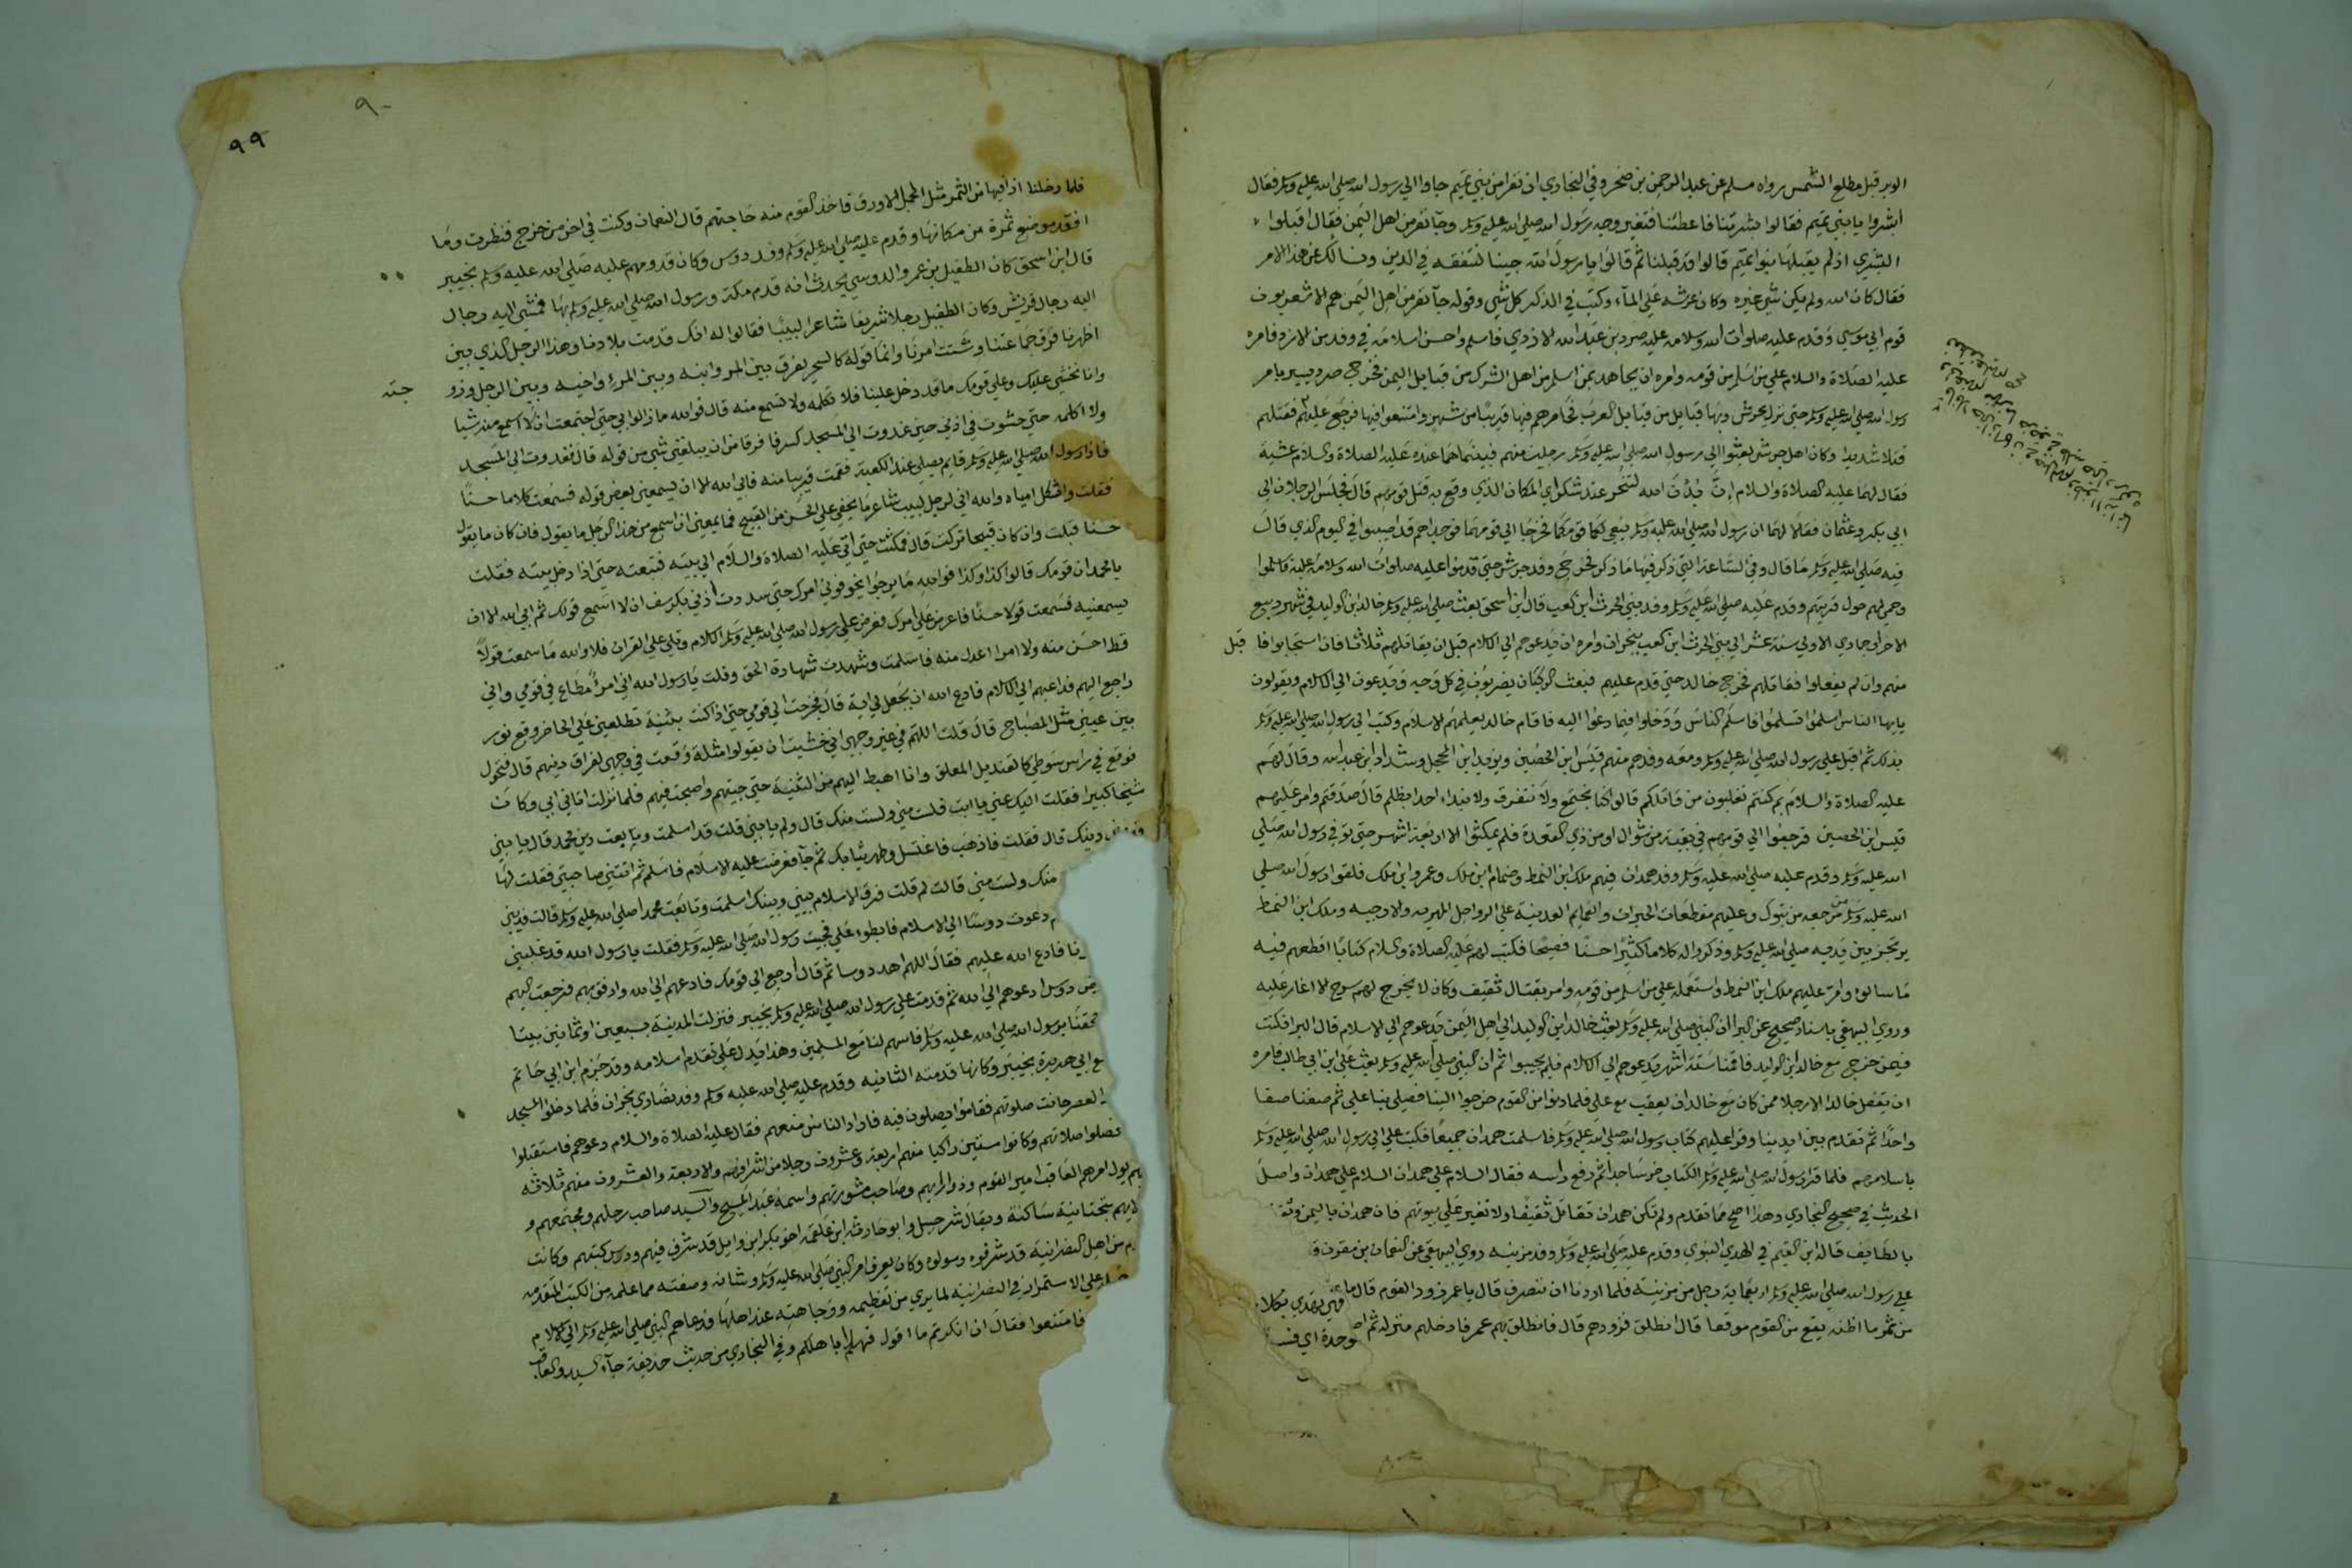 الوبر قبل مطلع الشمس رواه مسلم عن عبد الرحمن بن صخر وفي البخاري ان نفرا من بني تميم جاوا الي رسول الله صلي الله عليه وسلم فقال
ابشروا يا بني تميم فقالوا بشرتنا فاعطنا فتغير وجه رسول الله صلي الله عليه وسلم وجآ نفر من اهل اليمن فقال اقبلوا
البشري اذ لم يقبلها بنوا تميم قالوا قد قبلنا ثم قالوا يا رسول الله جينا لنتفقه في الدين ونسالك عن هذا الامر
فقال كان الله ولم يكن شي غيره وكان عرشه علي المآء وكتب في الذكر كل شي وقوله جآ نفر من اهل اليمن هم الاشعريون
قوم ابي موسي وقدم عليه صلوات الله وسلامه عليه صرد بن عبد الله الازدي فاسلم واحسن اسلامه في وفد من الازد فامره
عليه الصلاة والسلام علي من اسلم من قومه وامره ان يجاهد بمن اسلم من اهل الشرك من قبايل اليمن فخرج صرد يسير بامر
رسول الله صلي الله عليه وسلم حتي نزل بجرش وبها قبايل من قبايل العرب فحاصرهم فيها قريبا من شهر وامتنعوا فيها فرجع عليهم فقتلهم
قتلا شديدا وكان اهل جرش بعثوا الي رسول الله صلي الله عليه وسلم رجلين منهم فبينما هما عنده عليه الصلاة والسلام عشية
فقال لهما عليه الصلاة والسلام ان بدن الله لتنحر عند شكر اي المكان الذي وقع به قتل قومهم قال فجلس الرجلان الي
ابي بكر وعثمان فقالا لهما ان رسول الله صلي الله عليه وسلم ينعي لكما قومكما فخرجا الي قومهما فوجداهم قد اصيبوا في اليوم الذي قال
فيه صلي الله عليه وسلم ما قال وفي الساعة التي ذكر فيها ما ذكر فخرج وفد جرش حتي قدموا عليه صلوات الله وسلامه عليه فاسلموا
وحمي لهم حول قريتهم وقدم عليه صلي الله عليه وسلم وفد بني الحرث ابن كعب قال ابن اسحق بعث صلي الله عليه وسلم خالد ابن الوليد في شهر ربيع
الاخر او جمادي الاولي سنة عشر الي بني الحرث ابن كعب بنجران وامره ان يدعوهم الي الاسلام قبل ان يقاتلهم ثلاثا فان استجابوا فاقبل
منهم وان لم يفعلوا فقاتلهم فخرج خالد حتي قدم عليهم فبعث الركبان يضربون في كل وجه ويدعون الي الاسلام ويقولون
يا يها الناس اسلموا تسلموا فاسلم الناس ودخلوا فيما دعوا اليه فاقام خالد يعلمهم الاسلام وكتب الي رسول الله صلي الله عليه وسلم
بذلك ثم اقبل علي رسول الله صلي الله عليه وسلم ومعه وفدهم منهم قيس ابن الحصين ويزيد ابن المحجل وشداد ابن عبد الله وقال لهم
عليه الصلاة والسلام بم كنتم تغلبون من قاتلكم قالوا كنا نجتمع ولا نتفرق ولا نبداء احدا بظلم قال صدقتم وامر عليهم
قيس ابن الحصين فرجعوا الي قومهم في بقية من شوال او من ذي القعدة فلم يمكثوا الا اربعة اشهر حتي توفي رسول الله صلي
الله عليه وسلم وقدم عليه صلي الله عليه وسلم وفد همدان فيهم ملك ابن النمط وضمام ابن ملك وعمرو ابن ملك فلقوا رسول الله صلي
الله عليه وسلم مرجعه من تبوك وعليهم مقطعات الحبرات والعمايم العدنية علي الرواحل المهرية والارحبيه وملك ابن النمط
يرتجز بين يديه صلي الله عليه وسلم وذكروا له كلاما كثيرا حسنا فصيحا فكتب لهم عليه الصلاة والسلام كتابا اقطعهم فيه
ما سالوه وامر عليهم ملك ابن النمط واستعمله علي من اسلم من قومه وامر بقتال ثقيف وكان لا يخرج لهم سرح الا اغار عليه
وروي البيهقي باسناد صحيح عن البرا ان النبي صلي الله عليه وسلم بعث خالد ابن الوليد الي اهل اليمن يدعوهم الي الاسلام قال البرا فكنت
فيمن خرج مع خالد ابن الوليد فاقمنا ستة اشهر يدعوهم الي الاسلام فلم يجيبوا ثم ان النبي صلي الله عليه وسلم بعث علي ابن ابي طالب فامره
ان يقفل خالدا الا رجلا ممن كان مع خالد ان يعقب مع علي فلما دنوا من القوم خرجوا الينا فصلي بنا علي ثم صفنا صفا
واحدا ثم تقدم بين ايدينا وقرا عليهم كتاب رسول الله صلي الله عليه وسلم فاسلمت همدان جميعا فكتب علي الي رسول الله صلي الله عليه وسلم
باسلامهم فلما قرا رسول الله صلي الله عليه وسلم الكتاب خر ساجدا ثم رفع راسه فقال السلام علي همدان السلام علي همدان واصل
الحديث في صحيح البخاري وهذا اصح مما تقدم ولم تكن همدان تقاتل ثقيفا ولا تغير علي بيوتهم فان همدان باليمن وثقيف
بالطايف قاله ابن القيم في الهدي النبوي وقدم عليه صلي الله عليه وسلم وفد مزينه روي البيهقي عن النعمان بن مقرن
علي رسول الله صلي الله عليه وسلم اربعماية رجل من مزينة فلما اردنا ان ننصرف قال يا عمر زود القوم قال ما
من تمر ما اظنه يقع من القوم موقعا قال انطلق فزودهم قال فانطلق بهم عمر فادخلهم منزله ثم
٩٠
٩٩
فلما دخلنا اذا فيها من التمر مثل الجمل الاورق فاخذ القوم منه حاجتهم قال النعمان وكنت في اخر من خرج فنظرت وما
افقد موضع تمرة من مكانها وقدم عليه صلي الله عليه وسلم وفد دوس وكان قدومهم عليه صلي الله عليه وسلم بخيبر
قال ابن اسحق كان الطفيل بن عمرو الدوسي يحدث انه قدم مكة ورسول الله صلي الله عليه وسلم بها فمشي اليه رجال
اليه رجال قريش وكان الطفيل رجلا شريفا شاعرا لبيبا فقالوا له انك قدمت بلادنا وهذا الرجل الذي بين
اظهرنا فرق جماعتنا وشتت امرنا وانما قوله كالسحر يفرق بين المر وابنه وبين المرء واخيه وبين الرجل وزو جته
وانا نخشي عليك وعلي قومك ما قد دخل علينا فلا تكلمه ولا تسمع منه قال فوالله ما زالوا بي حتي اجتمعت ان لا اسمع منه شيا
ولا اكلمه حتي حشوت في اذني حين غدوت الي المسجد كرسفا فرقا من ان يبلغني شي من قوله قال فغدوت الي المسجد
فاذا رسول الله صلي الله عليه وسلم قايم يصلي عند الكعبة فقمت قريبا منه فابي الله الا ان يسمعني بعض قوله فسمعت كلاما حسنا
فقلت واثكل امياه والله اني لرجل لبيب شاعر ما يخفي علي الحسن من القبيح فما يمنعني ان اسمع من هذا الرجل ما يقول فان كان ما يقول
حسنا قبلت وان كان قبيحا تركت قال فمكثت حتي اتي عليه الصلاة والسلام الي بيته فتبعته حتي اذا دخل بيته فقلت
يا محمد ان قومك قالوا كذا وكذا فوالله ما برحوا يخوفوني امرك حتي سددت اذني بكرسف ان لا اسمع قولك ثم ابي الله الا ان
يسمعنيه فسمعت قولا حسنا فاعرض علي امرك فعرض علي رسول الله صلي الله عليه وسلم الاسلام وتلي علي القران فلا والله ما سمعت قولاً
قط احسن منه ولا امرا اعدل منه فاسلمت وشهدت شهادة الحق وقلت يا رسول الله اني امرؤ مطاع في قومي واني
راجع اليهم فداعيهم الي الاسلام فادع الله ان يجعل لي اية قال فخرجت الي قومي حتي اذا كنت بثنية تطلعني علي الحاضر وقع نور
بين عيني مثل المصباح قال قلت اللهم في غير وجهي اني خشيت ان يقولوا مثلة وقعت في وجهي لفراق دينهم قال فتحول
فوقع في راس سوطي كالقنديل المعلق وانا اهبط اليهم من الثنية حتي جيتهم واصبحت فيهم فلما نزلت اتاني ابي وكان
شيخا كبيرا فقلت اليك عني يا ابت فلست مني ولست منك قال ولم يا بني قلت قد اسلمت وبايعت دين محمد قال يا بني
دينك قال فقلت فاذهب فاغتسل وطهر ثيابك ثم جآ فعرضت عليه الاسلام فاسلم ثم اتتني صاحبتي فقلت لها
منك ولست مني قالت لم قلت فرق الاسلام بيني وبينك اسلمت وتابعت محمدا صلي الله عليه وسلم قالت فديني
دعوت دوسا الي الاسلام فابطوا علي فجيت رسول الله صلي الله عليه وسلم فقلت يا رسول الله قد غلبني
فادع الله عليهم فقال اللهم اهد دوسا ثم قال ارجع الي قومك فادعهم الي الله وارفق بهم فرجعت اليهم
دوس ادعوهم الي الله ثم قدمت علي رسول الله صلي الله عليه وسلم بخيبر فنزلت المدينة بسبعين او ثمانين بيتا
برسول الله صلي الله عليه وسلم فاسهم لنا مع المسلمين وهذا يدل علي تقدم اسلامه وقد جزم ابن ابي حاتم
ابي هريرة بخيبر وكانها قدمته الثانيه وقدم عليه صلي الله عليه وسلم وفد نصاري نجران فلما دخلوا المسجد
العصر حانت صلوتهم فقاموا يصلون فيه فاراد الناس منعهم فقال عليه الصلاة والسلام دعوهم فاستقبلوا
فصلوا صلاتهم وكانوا ستين راكبا منهم اربعة وعشرون رجلا من اشرافهم والاربعة والعشرون منهم ثلاثه
يول امرهم العاقب امير القوم وذو رايهم وصاحب مشورتهم واسمه عبد المسيح والسيد صاحب رحلهم ومجتمعهم و
بتحتانية ساكنة ويقال شرحبيل وابو حارثه ابن علقمه اخو بكر ابن وايل قد شرف فيهم ودرس كتبهم وكانت
من اهل النصرانية قد شرفوه ومولوه وكان يعرف امر النبي صلي الله عليه وسلم وشانه وصفته مما علمه من الكتب المتقدمه
علي الاستمرار في النصرانية لما يري من تعظيمه ووجاهته عند اهلها فدعاهم النبي صلي الله عليه وسلم الي الاسلام
فامتنعوا فقال ان انكرتم ما اقول فهلم اباهلكم وفي البخاري من حديث حذيفة جآء السيد والعاقب